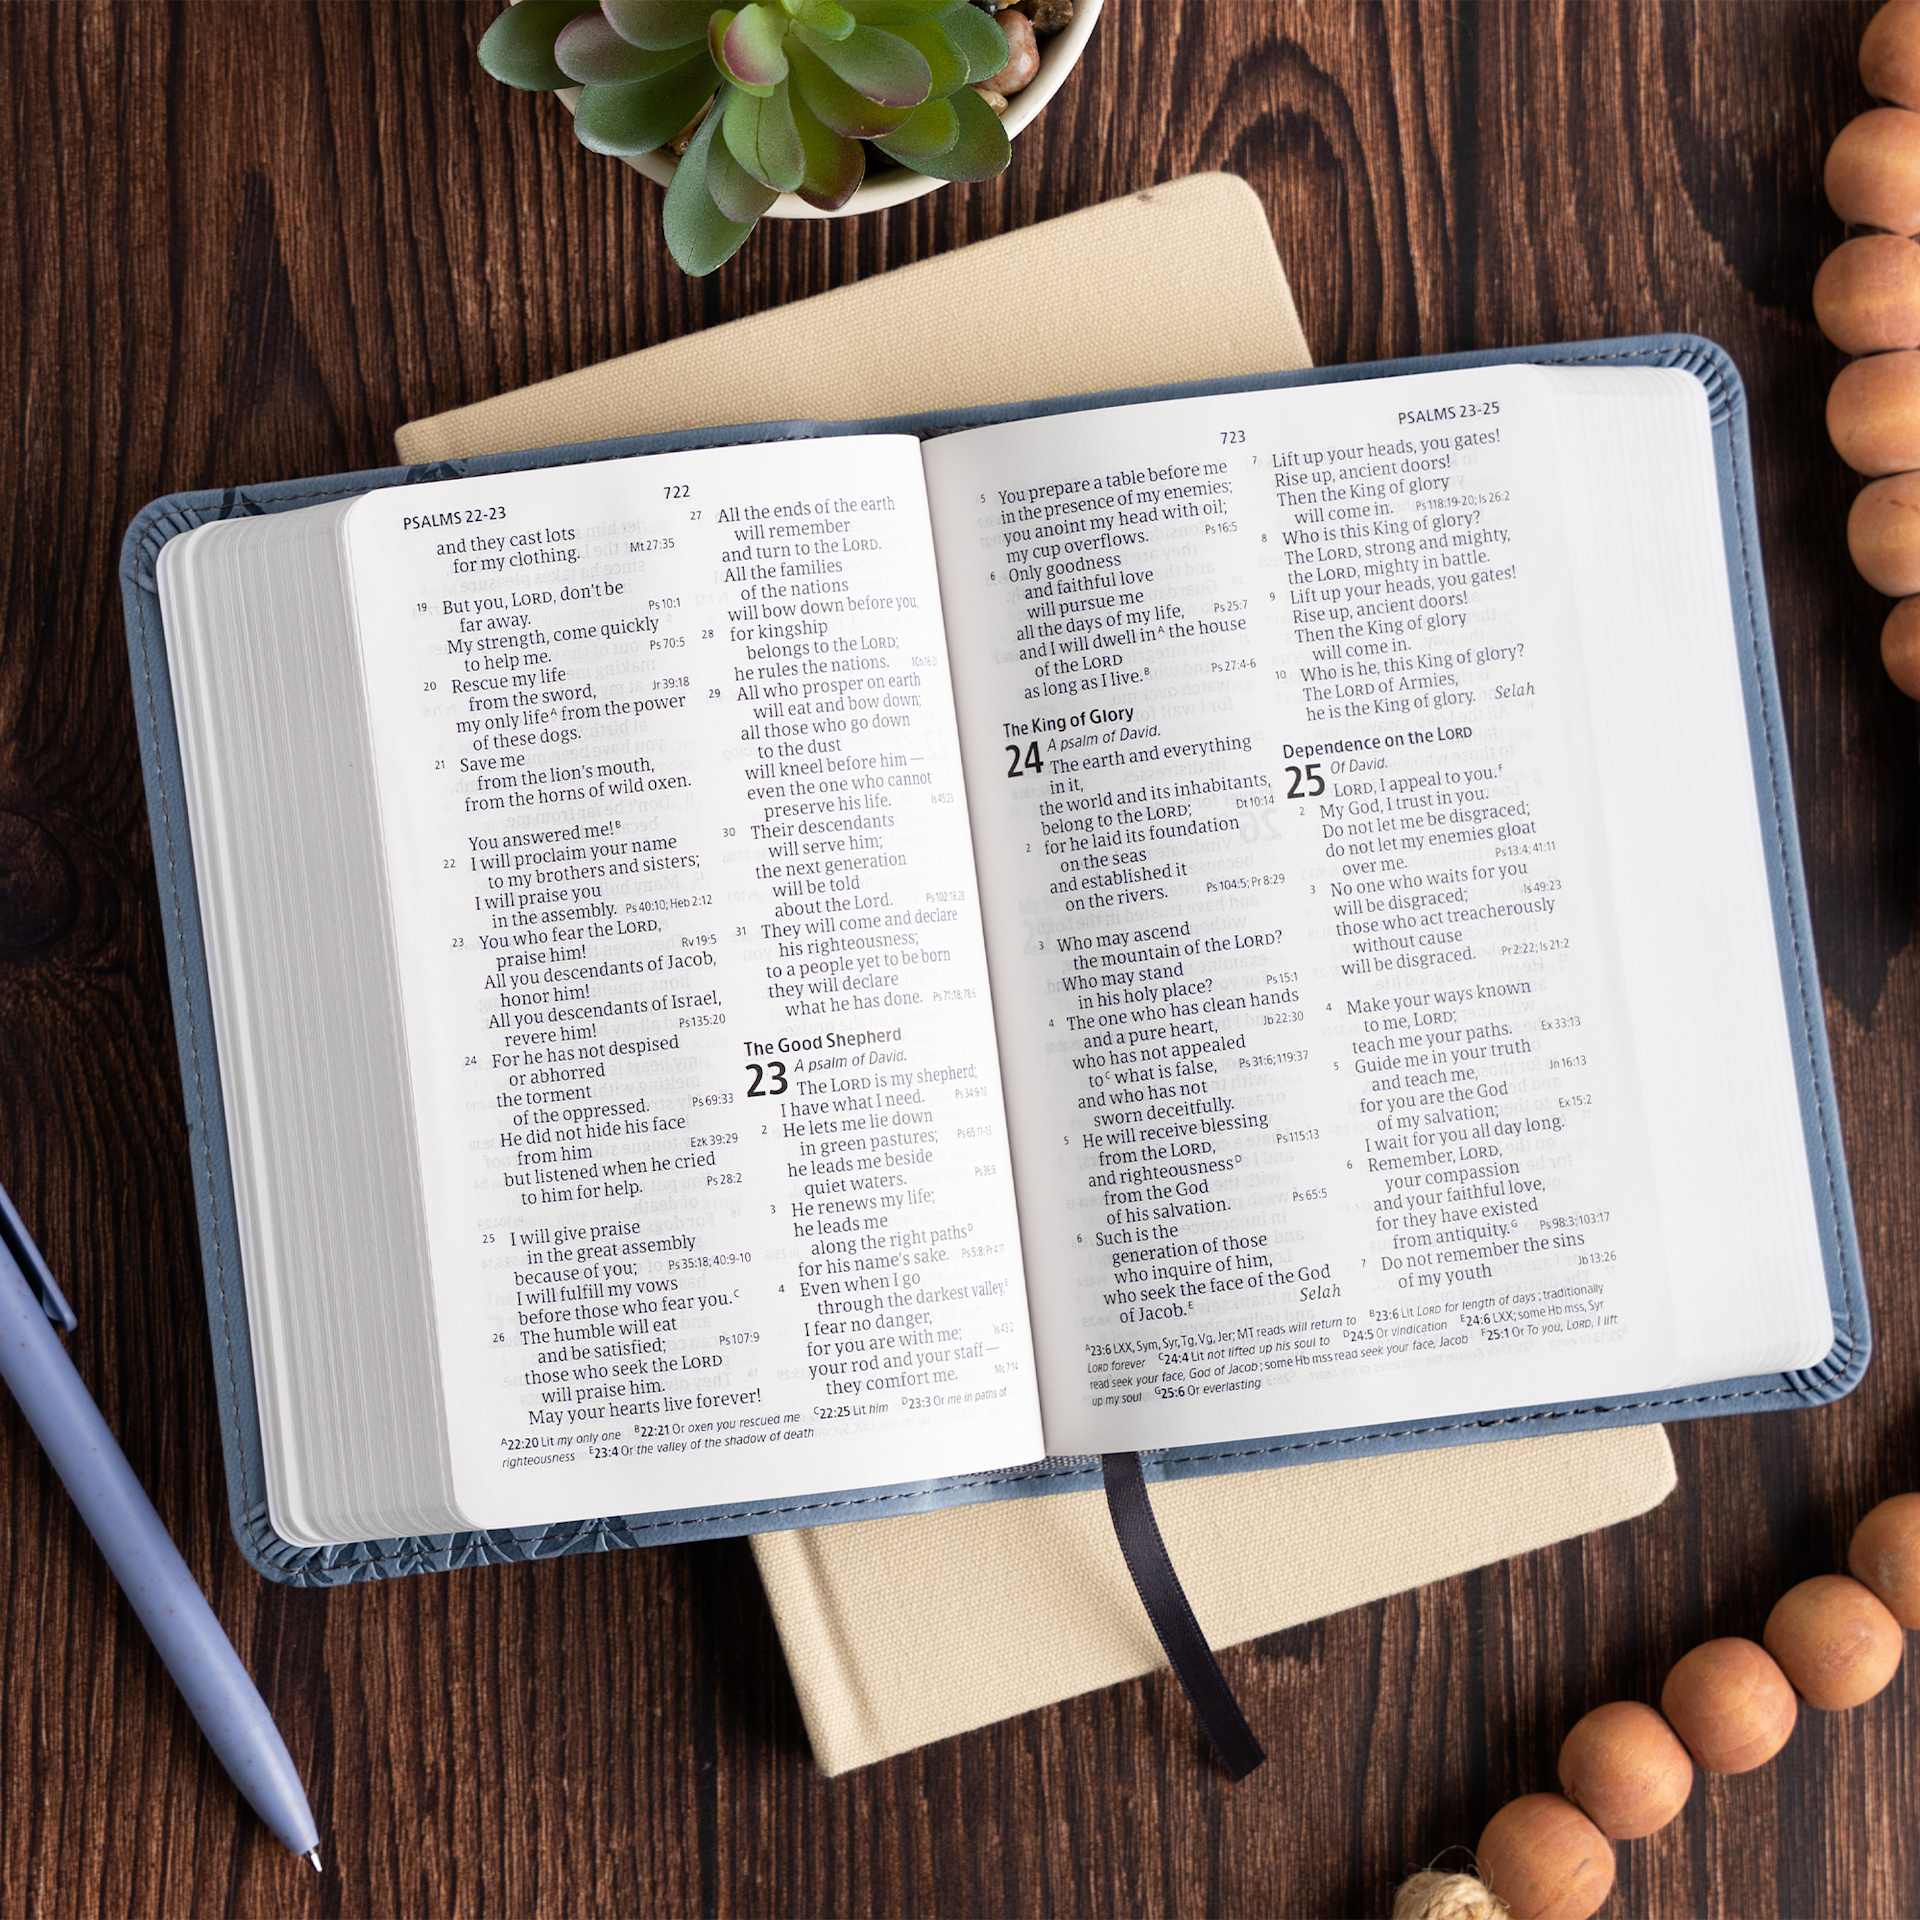 PSALMS 22-23
722
and they cast lots
for my clothing. Mt 27:35
19 But you, LORD, don't be
far away. Ps 10:1
My strength, come quickly
to help me. Ps 70:5
20 Rescue my life
from the sword, Jr 39:18
my only lifeᴬ from the power
of these dogs.
21 Save me
from the lion's mouth,
from the horns of wild oxen.
You answered me!ᴮ
22 I will proclaim your name
to my brothers and sisters;
I will praise you
in the assembly. Ps 40:10; Heb 2:12
23 You who fear the LORD,
praise him! Rv 19:5
All you descendants of Jacob,
honor him!
All you descendants of Israel,
revere him! Ps 135:20
24 For he has not despised
or abhorred
the torment
of the oppressed. Ps 69:33
He did not hide his face
from him Ezk 39:29
but listened when he cried
to him for help. Ps 28:2
25 I will give praise
in the great assembly
because of you; Ps 35:18; 40:9-10
I will fulfill my vows
before those who fear you.ᶜ
26 The humble will eat
and be satisfied; Ps 107:9
those who seek the LORD
will praise him.
May your hearts live forever!
27 All the ends of the earth
will remember
and turn to the LORD.
All the families
of the nations
will bow down before you,
28 for kingship
belongs to the LORD;
he rules the nations.
29 All who prosper on earth
will eat and bow down;
all those who go down
to the dust
will kneel before him —
even the one who cannot
preserve his life. Is 45:23
30 Their descendants
will serve him;
the next generation
will be told
about the Lord.
31 They will come and declare
his righteousness;
to a people yet to be born
they will declare
what he has done.
The Good Shepherd
23 A psalm of David.
The LORD is my shepherd;
I have what I need.
2 He lets me lie down
in green pastures;
he leads me beside
quiet waters.
3 He renews my life;
he leads me
along the right pathsᴰ
for his name's sake.
4 Even when I go
through the darkest valley,ᴱ
I fear no danger,
for you are with me;
your rod and your staff —
they comfort me.
ᴬ22:20 Lit my only one ᴮ22:21 Or oxen you rescued me ᶜ22:25 Lit him ᴰ23:3 Or me in paths of
righteousness ᴱ23:4 Or the valley of the shadow of death
723
PSALMS 23-25
5 You prepare a table before me
in the presence of my enemies;
you anoint my head with oil;
my cup overflows. Ps 16:5
6 Only goodness
and faithful love
will pursue me
all the days of my life, Ps 25:7
and I will dwell inᴬ the house
of the LORD
as long as I live.ᴮ Ps 27:4-6
The King of Glory
24 A psalm of David.
The earth and everything
in it,
the world and its inhabitants,
belong to the LORD; Dt 10:14
2 for he laid its foundation
on the seas
and established it
on the rivers. Ps 104:5; Pr 8:29
3 Who may ascend
the mountain of the LORD?
Who may stand
in his holy place? Ps 15:1
4 The one who has clean hands
and a pure heart, Jb 22:30
who has not appealed
toᶜ what is false, Ps 31:6; 119:37
and who has not
sworn deceitfully.
5 He will receive blessing
from the LORD, Ps 115:13
and righteousnessᴰ
from the God
of his salvation. Ps 65:5
6 Such is the
generation of those
who inquire of him,
who seek the face of the God
of Jacob.ᴱ Selah
7 Lift up your heads, you gates!
Rise up, ancient doors!
Then the King of glory
will come in. Ps 118:19-20; Is 26:2
8 Who is this King of glory?
The LORD, strong and mighty,
the LORD, mighty in battle.
9 Lift up your heads, you gates!
Rise up, ancient doors!
Then the King of glory
will come in.
10 Who is he, this King of glory?
The LORD of Armies,
he is the King of glory. Selah
Dependence on the LORD
25 Of David.
LORD, I appeal to you.ᶠ
2 My God, I trust in you.
Do not let me be disgraced;
do not let my enemies gloat
over me. Ps 13:4; 41:11
3 No one who waits for you
will be disgraced; Is 49:23
those who act treacherously
without cause
will be disgraced. Pr 2:22; Is 21:2
4 Make your ways known
to me, LORD;
teach me your paths. Ex 33:13
5 Guide me in your truth
and teach me, Jn 16:13
for you are the God
of my salvation; Ex 15:2
I wait for you all day long.
6 Remember, LORD,
your compassion
and your faithful love,
for they have existed
from antiquity.ᴳ Ps 98:3; 103:17
7 Do not remember the sins
of my youth Jb 13:26
ᴬ23:6 LXX, Sym, Syr, Tg, Vg, Jer; MT reads will return to ᴮ23:6 Lit LORD for length of days ; traditionally
LORD forever ᶜ24:4 Lit not lifted up his soul to ᴰ24:5 Or vindication ᴱ24:6 LXX; some Hb mss, Syr
read seek your face, God of Jacob ; some Hb mss read seek your face, Jacob ᶠ25:1 Or To you, LORD, I lift
up my soul ᴳ25:6 Or everlasting